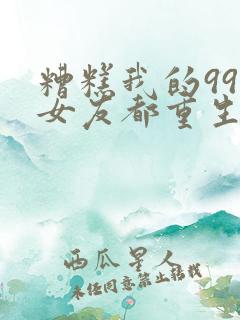 糟糕我的99
女友都重生
西瓜星人
未经同意禁止转载